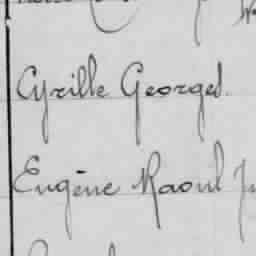 Cyrille Georges
Eugène Raoul